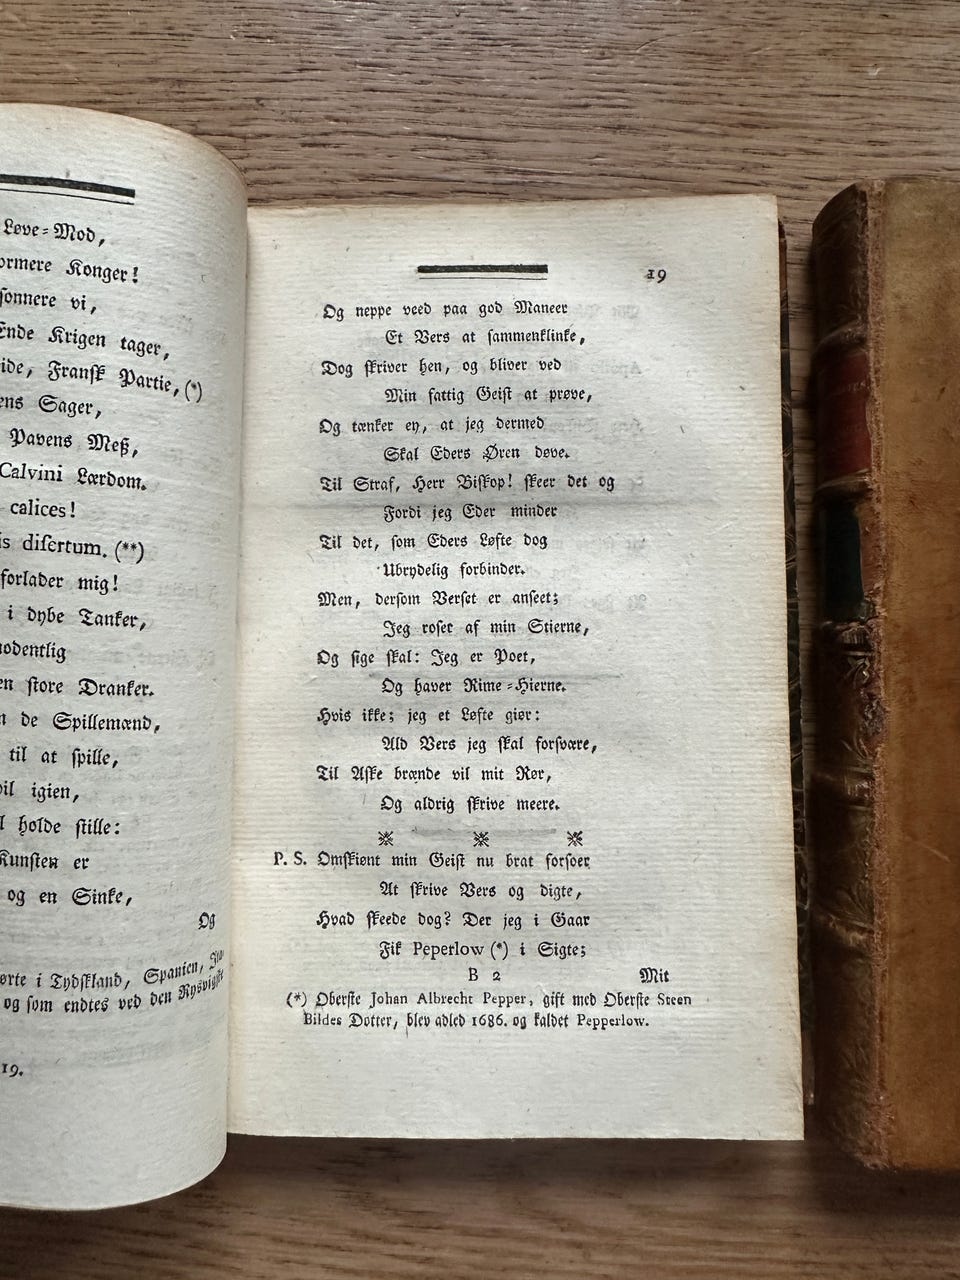 Løve-Mod,
ormere Konger!
sonnere vi,
Ende Krigen tager,
ide, Fransk Partie, (*)
ens Sager,
Pavens Meß,
Calvini Lærdom.
calices!
is disertum. (**)
forlader mig!
i dybe Tanker,
nodentlig
en store Dranker.
n de Spillemænd,
til at spille,
vil igien,
l holde stille:
Kunsten er
og en Sinke,
Og
ørte i Tydskland, Spanien,
og som endtes ved den Rysvigske
19.
19
Og neppe veed paa god Maneer
Et Vers at sammenklinke,
Dog skriver hen, og bliver ved
Min fattig Geist at prøve,
Og tænker ey, at jeg dermed
Skal Eders Øren døve.
Til Straf, Herr Biskop! skeer det og
Fordi jeg Eder minder
Til det, som Eders Løfte dog
Ubrydelig forbinder.
Men, dersom Verset er anseet;
Jeg roser af min Stierne,
Og sige skal: Jeg er Poet,
Og haver Rime-Hierne.
Hvis ikke; jeg et Løfte giør:
Ald Vers jeg skal forsvære,
Til Aske brænde vil mit Rør,
Og aldrig skrive meere.
P. S. Omskiønt min Geist nu brat forsoer
At skrive Vers og digte,
Hvad skeede dog? Der jeg i Gaar
Fik Peperlow (*) i Sigte;
B 2 Mit
(*) Oberste Johan Albrecht Pepper, gift med Oberste Steen
Bildes Dotter, blev adled 1686. og kaldet Pepperlow.